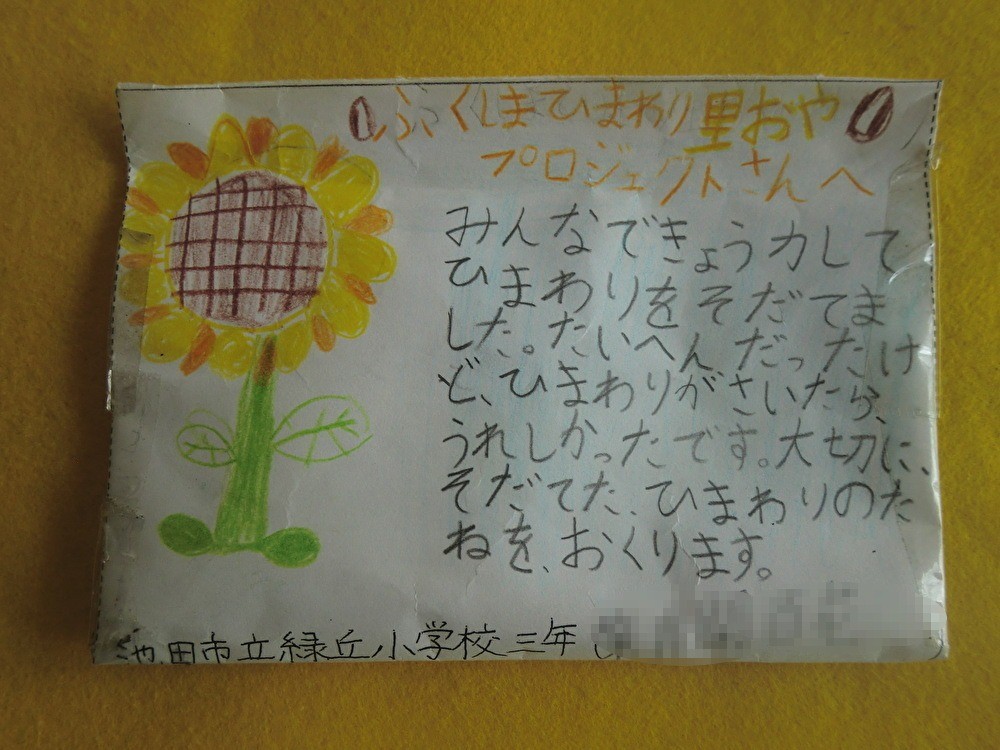 ふくしまひまわり里おや
プロジェクトさんへ
みんなできょう力して
ひまわりをそだてま
した。たいへんだったけ
ど、ひまわりがさいたら、
うれしかったです。大切に、
そだてた、ひまわりのた
ねを、おくります。
池田市立緑丘小学校三年